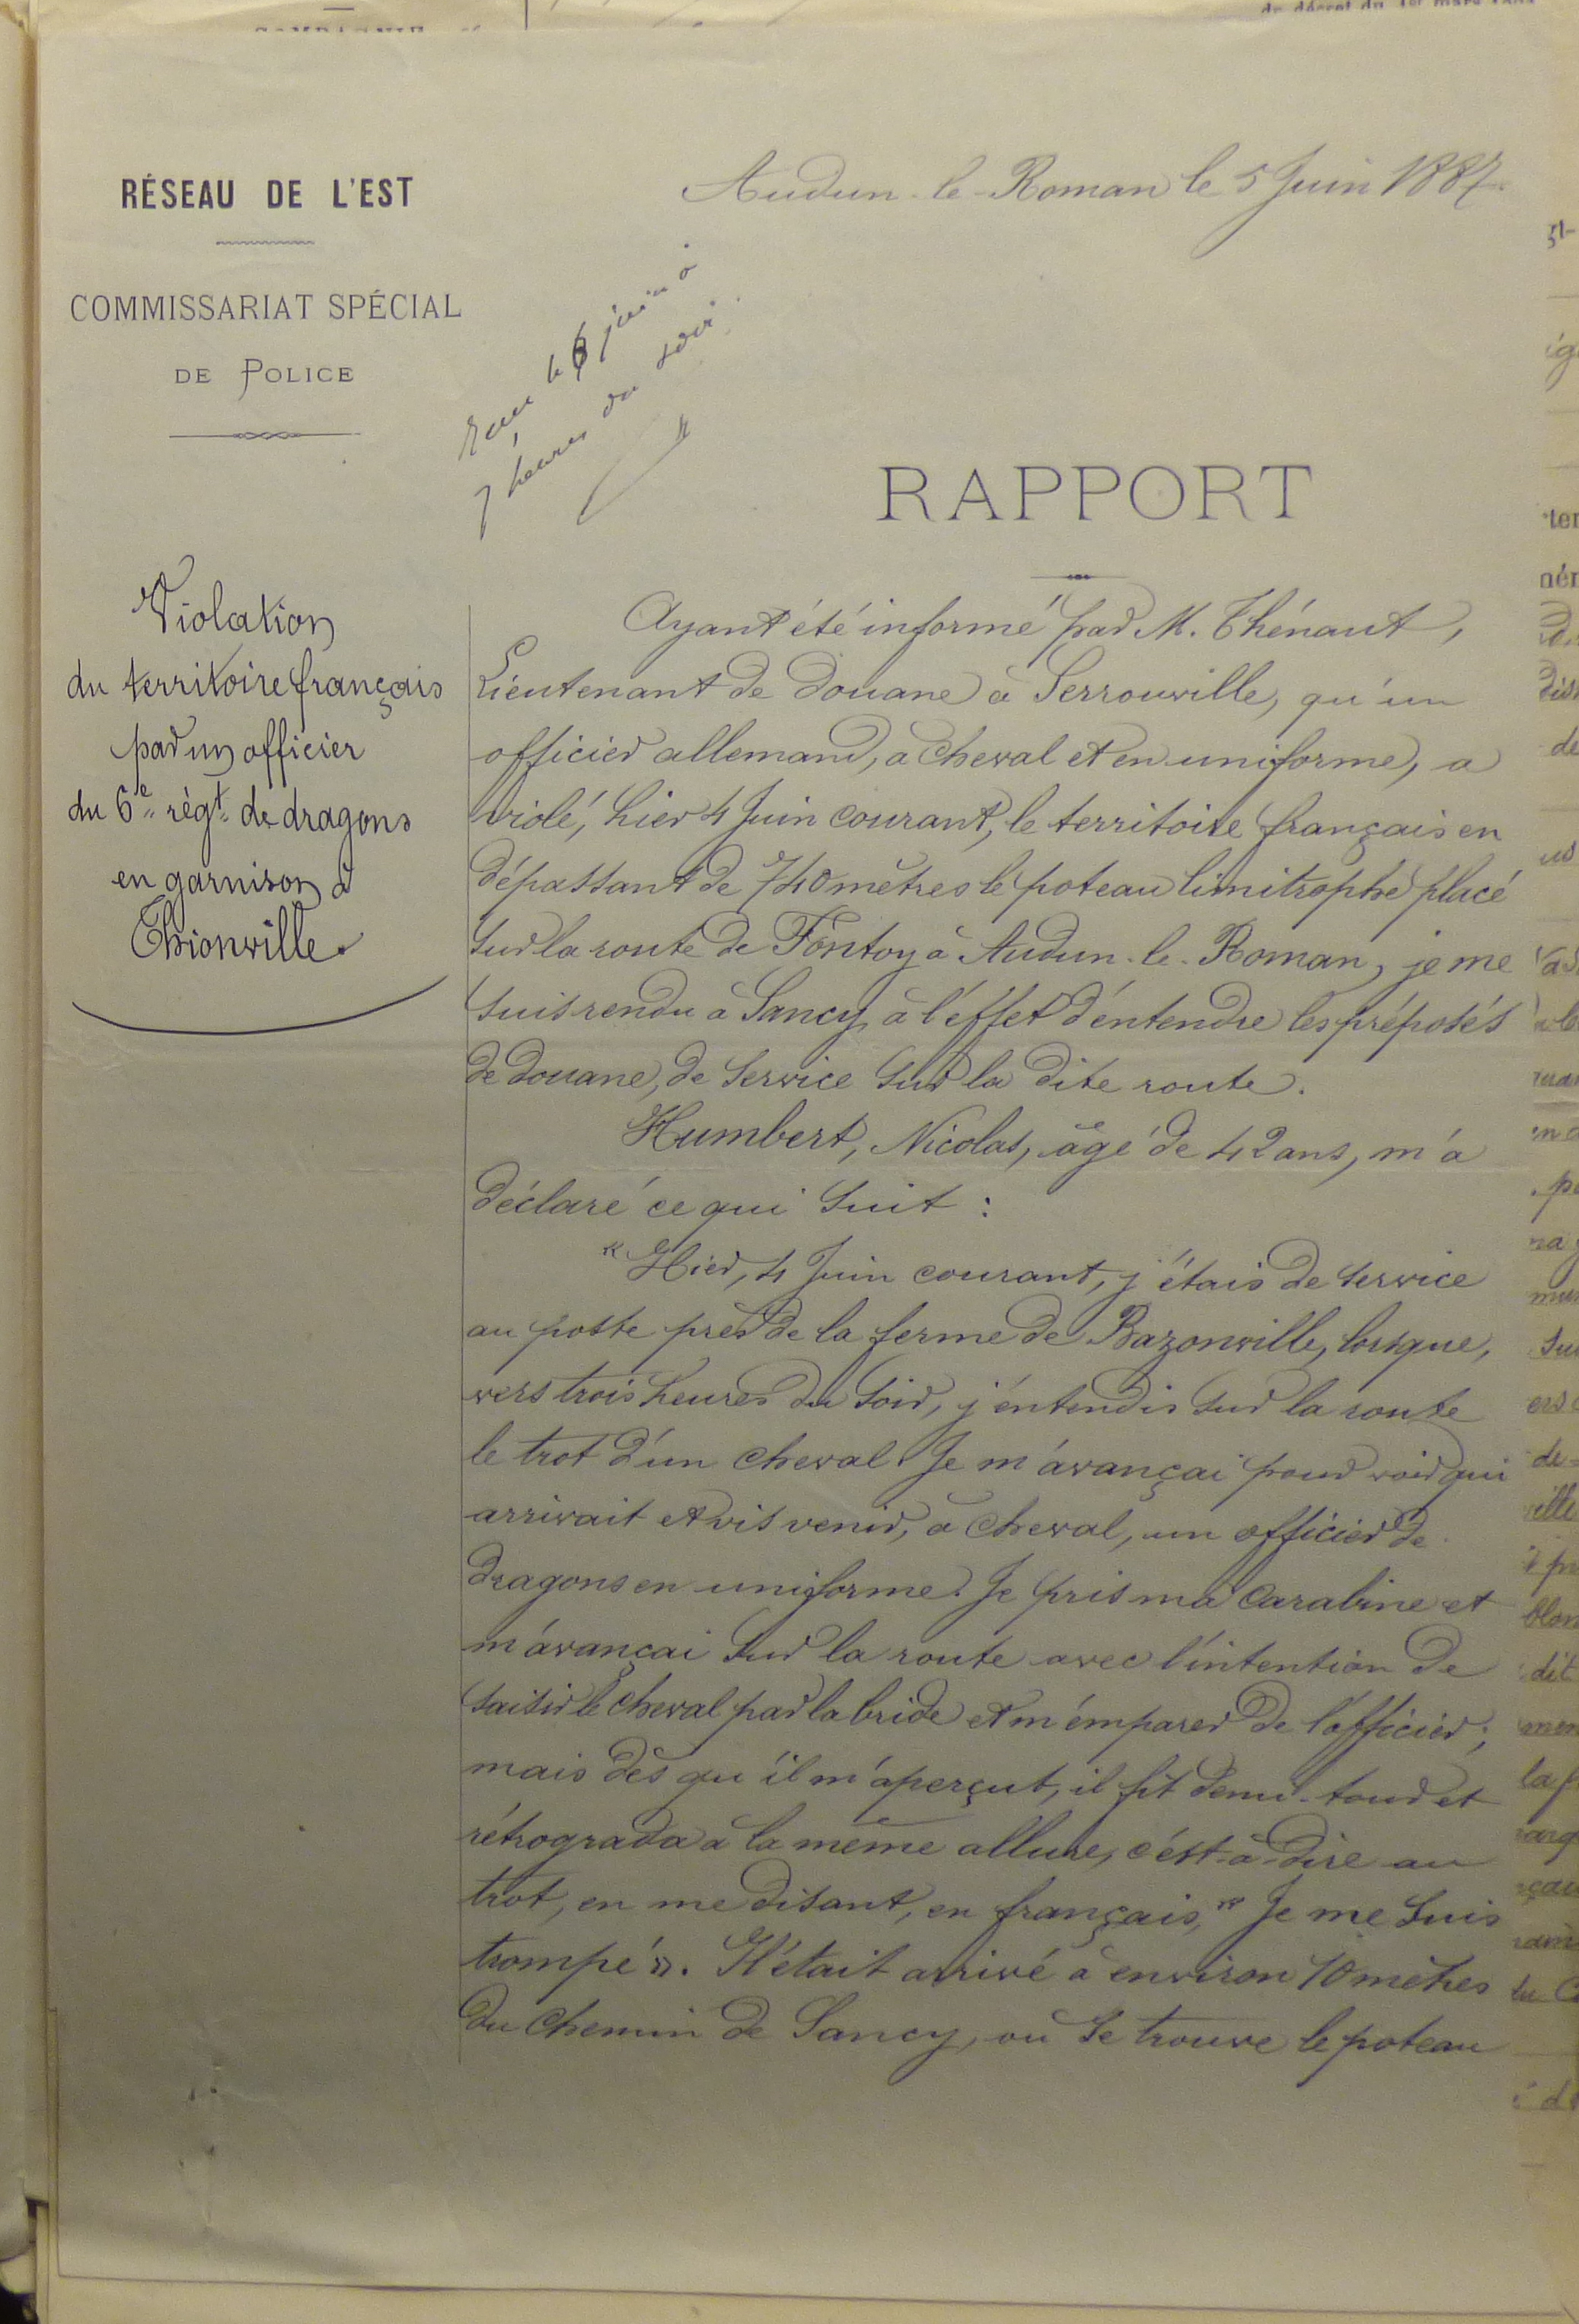 RÉSEAU DE L'EST
COMMISSARIAT SPÉCIAL
DE POLICE
Audun-le-Roman le 5 Juin 1887.
reçu le 6 juin à
7 heures du soir.
RAPPORT
Violation
du territoire français
par un officier
du 6e régt de dragons
en garnison à
Thionville.
Ayant été informé par M. Thénaut,
Lieutenant de Douane à Serrouville, qu'un
officier allemand, à cheval et en uniforme, a
violé, hier 4 Juin courant, le territoire français en
dépassant de 740 mètres le poteau limitrophe placé
sur la route de Fontoy à Audun-le-Roman, je me
suis rendu à Sancy à l'effet d'entendre les préposés
de douane, de service sur la dite route.
Humbert, Nicolas, âgé de 42 ans, m'a
déclaré ce qui suit :
« Hier, 4 Juin courant, j'étais de service
au poste près de la ferme de Bazonville, lorsque,
vers trois heures du soir, j'entendis sur la route
le trot d'un cheval. Je m'avançai pour voir qui
arrivait et vis venir, à cheval, un officier de
dragons en uniforme. Je pris ma carabine et
m'avançai sur la route avec l'intention de
saisir le cheval par la bride et m'emparer de l'officier ;
mais dès qu'il m'aperçut, il fit demi-tour et
rétrograda à la même allure, c'est-à-dire au
trot, en me disant, en français, « Je me suis
trompé ». Il était arrivé à environ 10 mètres
du chemin de Sancy, où se trouve le poteau